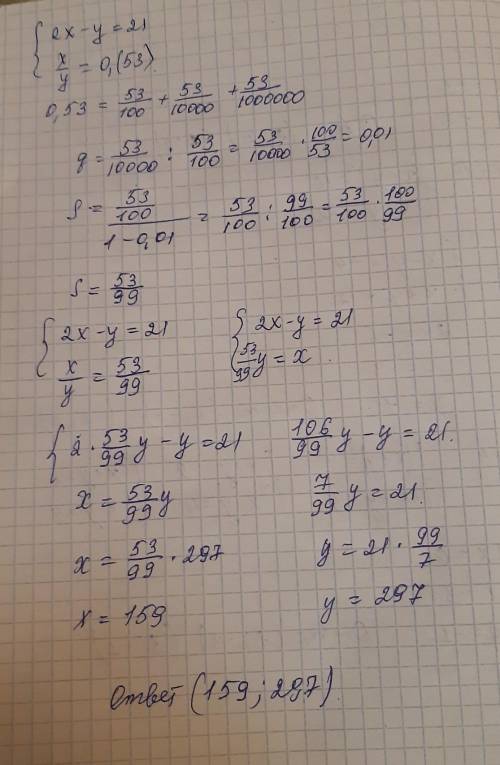 { 2x-y=21
x/y = 0,(53)
0,53 = 53/100 + 53/10000 + 53/1000000
q = 53/10000 : 53/100 = 53/10000 · 100/53 = 0,01
S = 53/100 / 1-0,01 = 53/100 : 99/100 = 53/100 · 100/99
S = 53/99
{ 2x-y=21 { 2x-y=21
x/y = 53/99 53/99 y = x
{ 2·53/99 y - y = 21 106/99 y - y = 21.
x = 53/99 y 7/99 y = 21.
x = 53/99 · 297 y = 21 · 99/7
x = 159 y = 297
Ответ (159; 297)